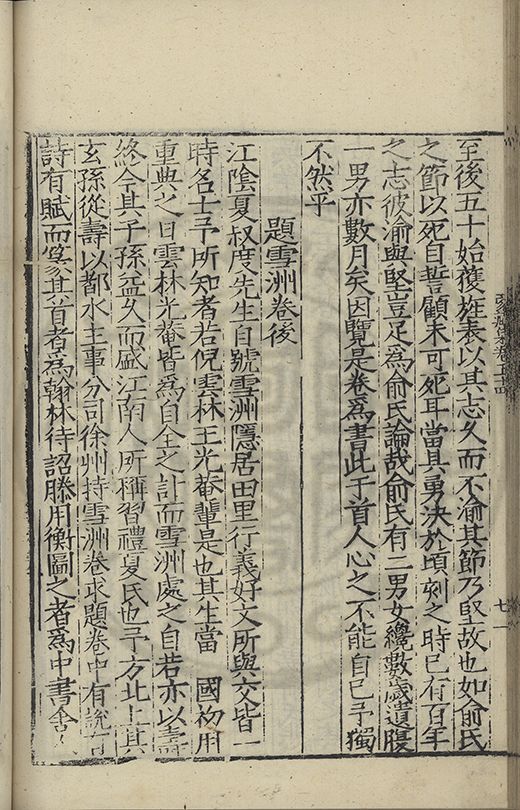 至後五十始獲旌表以其志久而不渝其節乃堅故也如俞氏
之節以死自誓顧未可死耳當具勇決於頃刻之時已有百年
之志彼渝與堅豈足為俞氏論哉俞氏有二男女纔數歲遺腹
一男亦數月矣因覽是卷為書此于首人心之不能自已予獨
不然乎
題雪洲卷後
江陰夏叔度先生自號雪洲隱居田里行義好文所與交皆一
時名士予所知者若倪雲林王光菴輩是也其生當 國初用
重典之日雲林光菴皆為自全之計而雪洲處之自若亦以壽
終今其子孫益久而盛江南人所稱習禮夏氏也予方北上其
玄孫從壽以都水主事分司徐州持雪洲卷求題卷中有說有
詩有賦而篆其首者為翰林待詔滕用衡圖之者為中書舍
七一